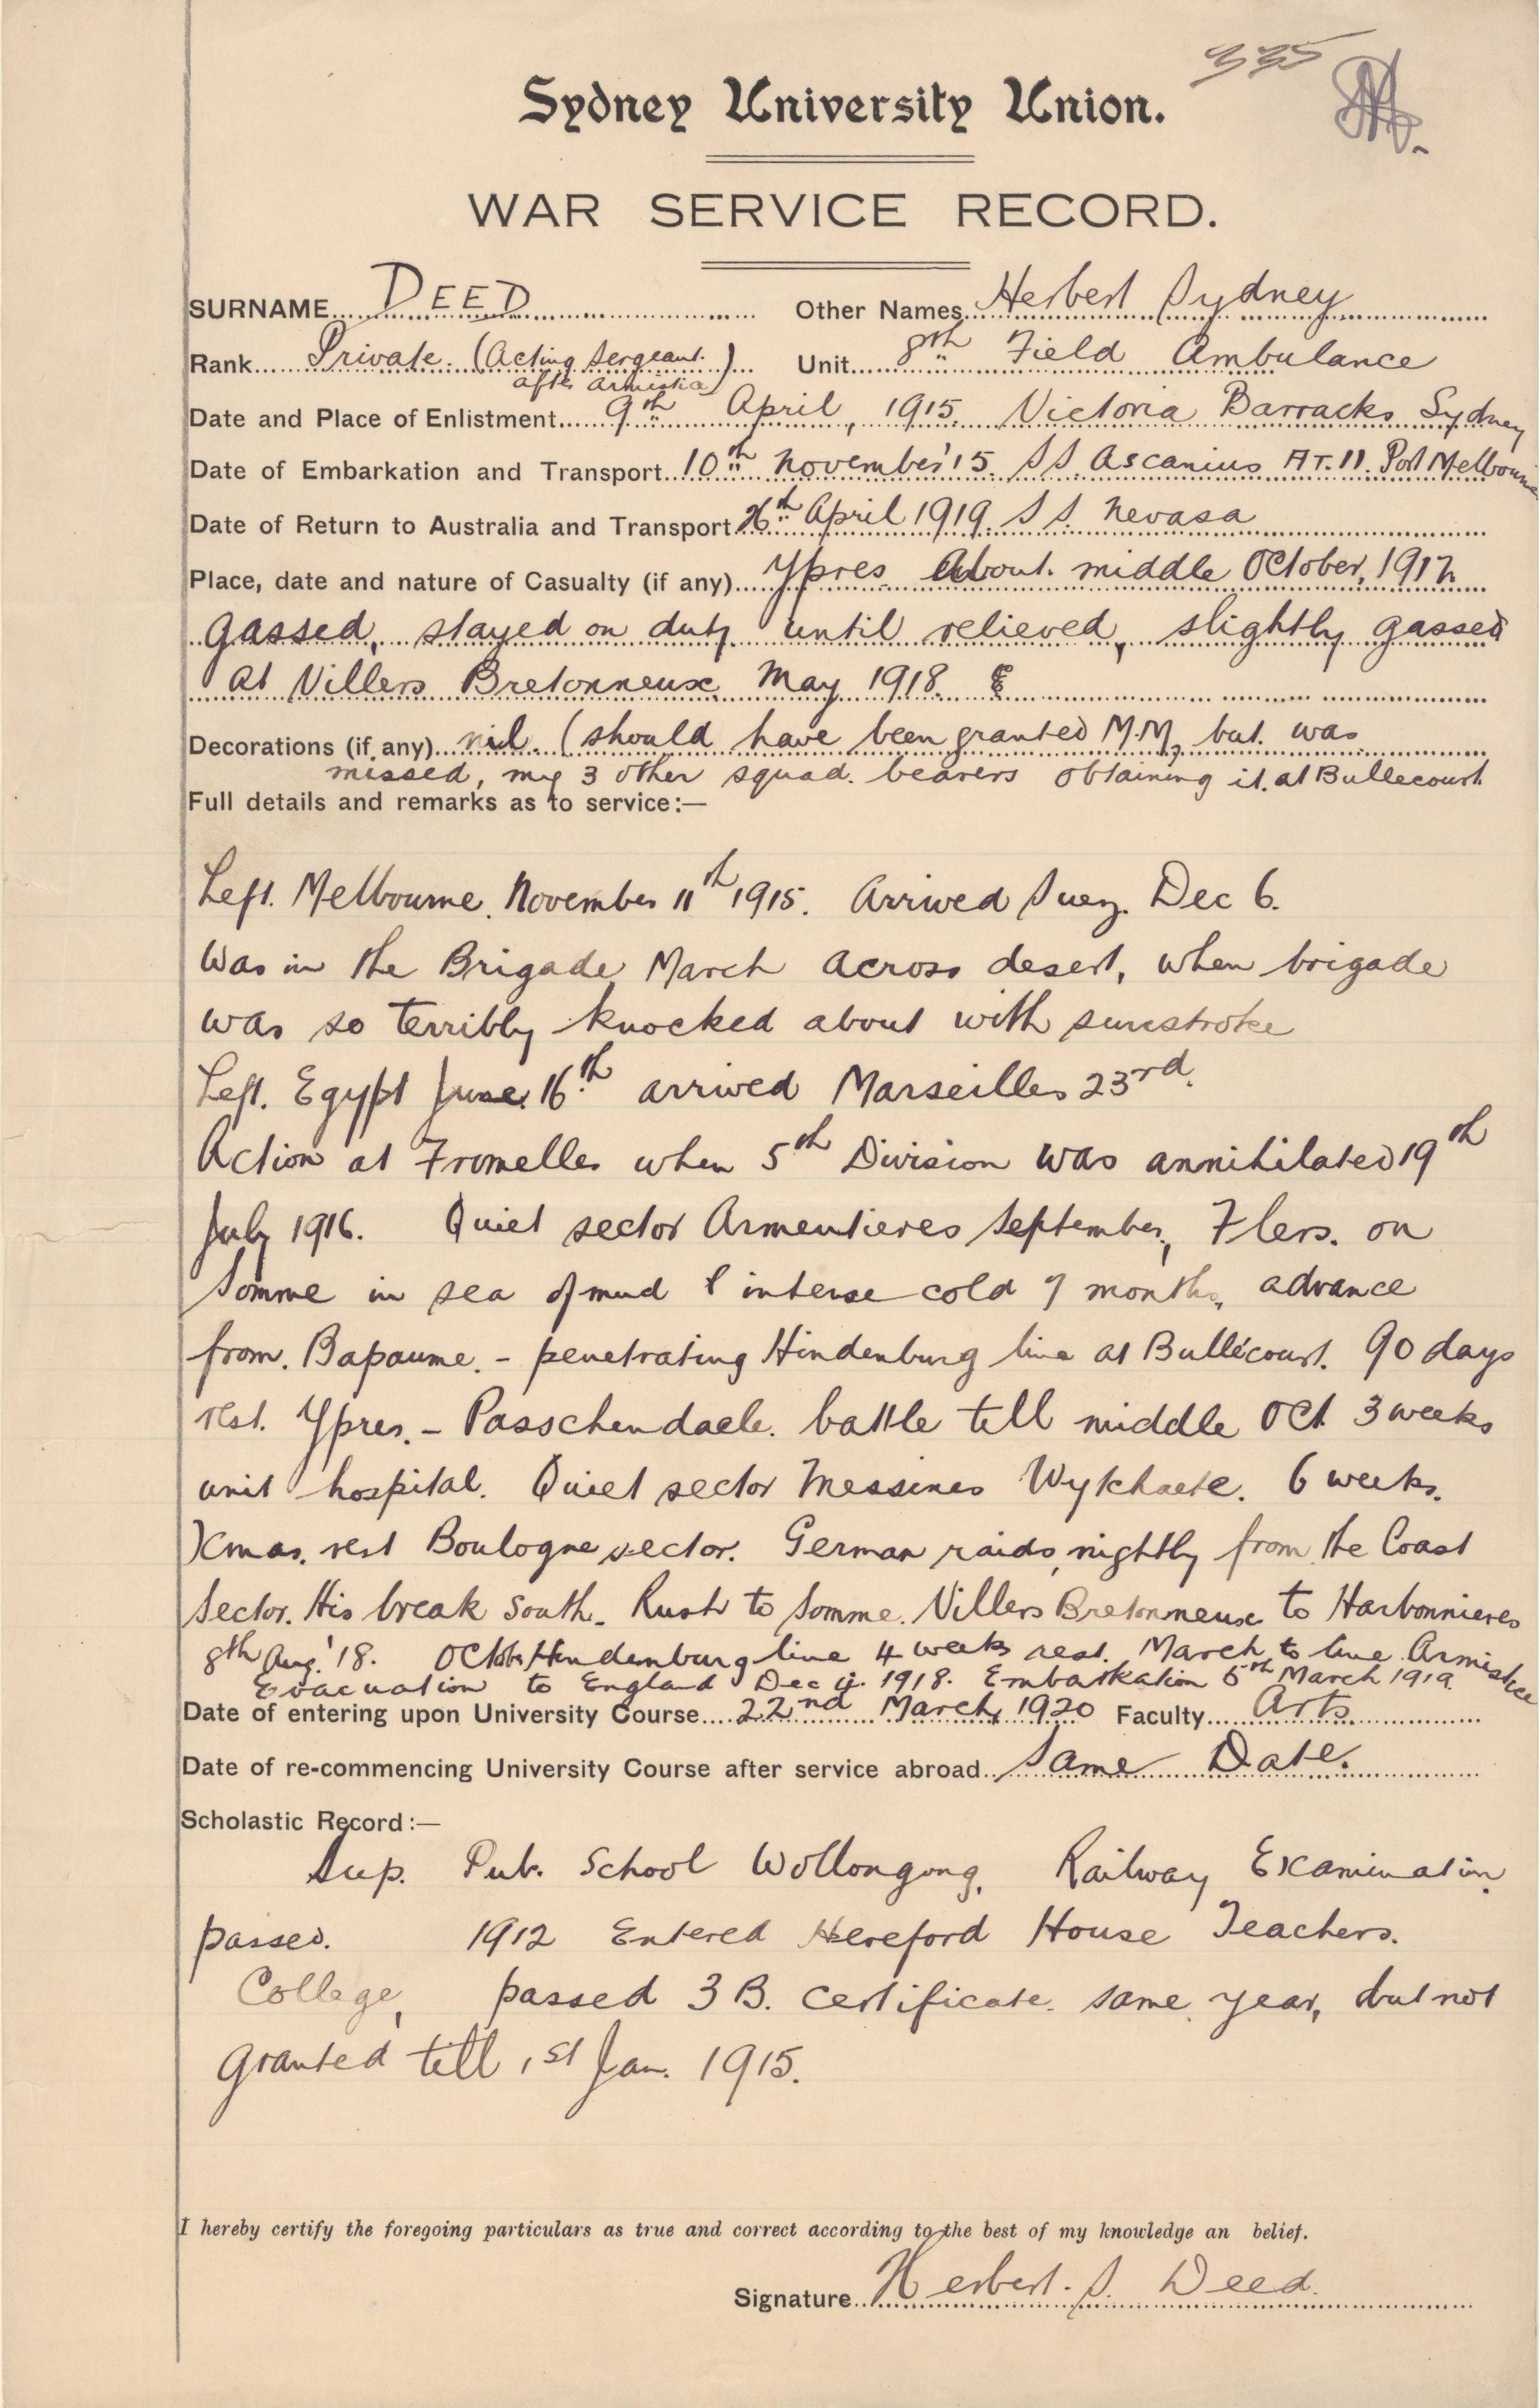 335
Sydney University Union.
WAR SERVICE RECORD.
SURNAME DEED Other Names Herbert Sydney
Rank Private. (Acting Sergeant. after armistice) Unit 8th Field Ambulance
Date and Place of Enlistment 9th April, 1915. Victoria Barracks Sydney
Date of Embarkation and Transport 10th November '15. SS. Ascanius AT. 11. Port Melbourne
Date of Return to Australia and Transport 26th April 1919. S S. Nevasa
Place, date and nature of Casualty (if any) Ypres About. middle October, 1917.
gassed, stayed on duty until relieved, slightly gassed
at Villers Bretonneux May 1918.
Decorations (if any) nil. (should have been granted M.M, but was
missed, my 3 other squad. bearers obtaining it. at Bullecourt
Full details and remarks as to service:—
Left. Melbourne. November 11th 1915. Arrived Suez. Dec 6.
Was in the Brigade March across desert, when brigade
was so terribly knocked about with sunstroke
Left. Egypt June. 16th arrived Marseilles 23rd.
Action at Fromelles when 5th Division was annihilated 19th
July 1916. Quiet sector Armentieres September, Flers. on
Somme in sea of mud & intense cold 7 months, advance
from. Bapaume. - penetrating Hindenburg line at Bullecourt. 90 days
rest. Ypres. - Passchendaele. battle till middle Oct 3 weeks
unit hospital. Quiet sector Messines Wytchaete. 6 weeks.
Xmas. rest Boulogne sector. German raids, nightly from the Coast
Sector. His break South. Rush to Somme. Villers Bretonneux to Harbonnieres
8th Aug. '18. October Hindenburg line 4 weeks rest. March to line. Armistice
Evacuation to England Dec 1918. Embarkation 5th March 1919.
Date of entering upon University Course 22nd March, 1920 Faculty Arts.
Date of re-commencing University Course after service abroad Same Date.
Scholastic Record:—
Sup. Pub. School Wollongong. Railway Examination
passed. 1912 Entered Hereford House Teachers.
College, passed 3 B. certificate. same year, but not
granted till 1st Jan. 1915.
I hereby certify the foregoing particulars as true and correct according to the best of my knowledge an belief.
Signature Herbert. S. Deed.